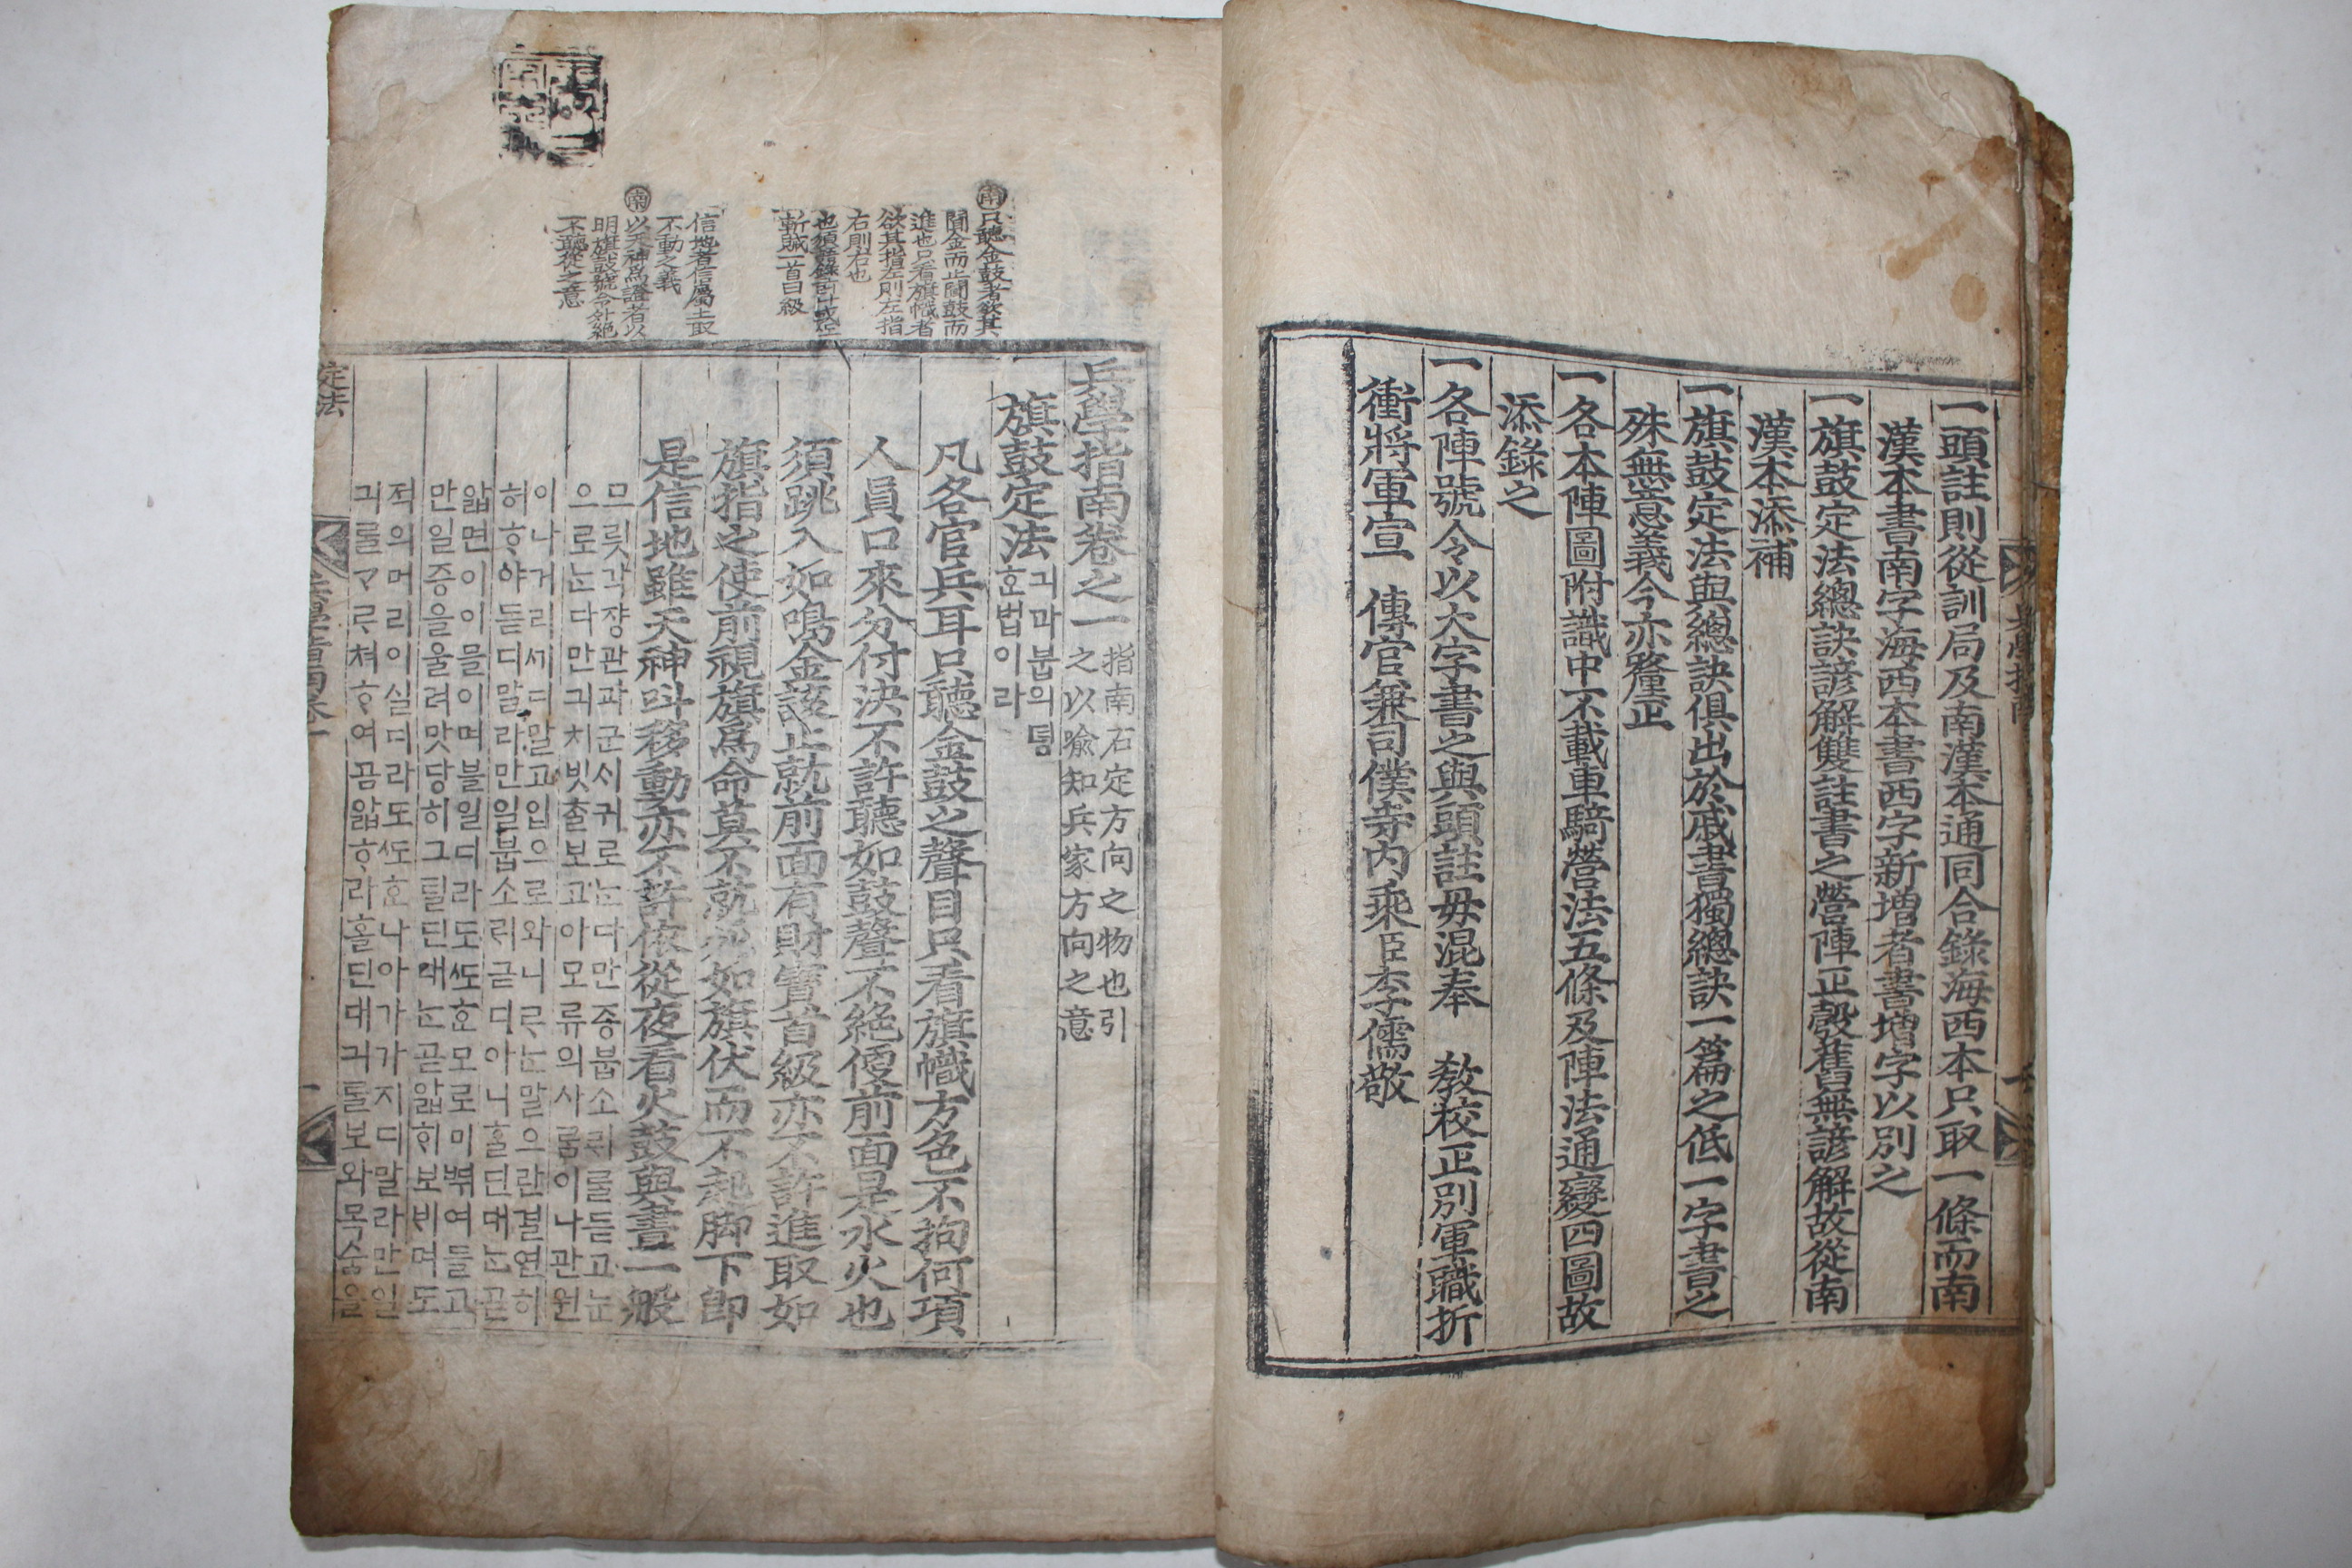 一頭註則從訓局及南漢本通同合錄海西本只取一條而南
漢本書南字海西本書西字新增者書增字以別之
一旗鼓定法總訣諺解雙註書之營陣正彀舊無諺解故從南
漢本添補
一旗鼓定法與總訣俱出於戚書獨總訣一篇之低一字書之
殊無意義今亦釐正
一各本陣圖附識中不載車騎營法五條及陣法通變四圖故
添錄之
一各陣號令以大字書之與頭註毋混奉 敎校正別軍職折
衝將軍宣 傳官兼司僕寺內乘臣李儒敬
南只聽金鼓者欲其
聞金而止聞鼓而
進也只看旗幟者
欲其指左則左指
右則右也
斬賊一首曰級
信地者信屬土取
不動之義
南以天神爲證者以
明旗鼓號令外絶
不聽從之意
兵學指南卷之一
指南石定方向之物也引
之以喩知兵家方向之意
旗鼓定法
긔마붑의뎡
호법이라
凡各官兵耳只聽金鼓之聲目只看旗幟方色不拘何項
人員口來分付決不許聽如鼓聲不絶便前面是水火也
須跳入如鳴金該止就前面有財寶首級亦不許進取如
旗指之使前視旗爲命莫不就死如旗伏而不起脚下卽
是信地雖天神呌移動亦不許依從夜看火鼓與晝一般
므릇각쟝관과군시귀로ᄂᆞᆫ다만죵붑소ᄅᆡ를듣고눈
으로ᄂᆞᆫ다만긔치빗츨보고아모류의사ᄅᆞᆷ이나관원
이나거리세디말고입으로와니ᄅᆞᄂᆞᆫ말으란결연히
허ᄒᆞ야듣디말라만일붑소ᄅᆡ귿디아니ᄒᆞᆯ딘대ᄂᆞᆫ곧
앏면이이믈이며블일디라도ᄯᅩᄒᆞᆫ모로미ᄲᅱ여들고
만일증을울려맛당히그틸딘대ᄂᆞᆫ곧앏ᄒᆡ보ᄇᆡ며도
적의머리이실디라도ᄯᅩᄒᆞᆫ나아가가지디말라만일
긔를ᄀᆞᄅᆞ쳐ᄒᆞ여곰앏ᄒᆞ라ᄒᆞᆯ딘대긔ᄅᆞᆯ보와목숨을
定法